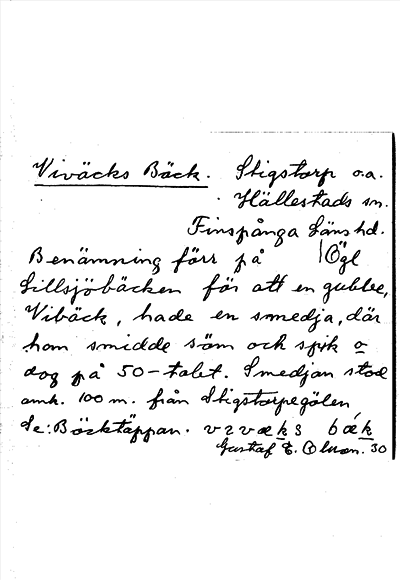 Viväcks Bäck. Stigstorp o.a.
Hällestads sn.
Finspånga Läns hd.
Benämning förr på Ögl
Lillsjöbäcken för att en gubbe,
Vibäck, hade en smedja, där
han smidde söm och spik o
dog på 50-talet. Smedjan stod
omk. 100 m. från Stigstorpegölen
Se: Bäcktäppan.
Gustaf E. Olsson. 30